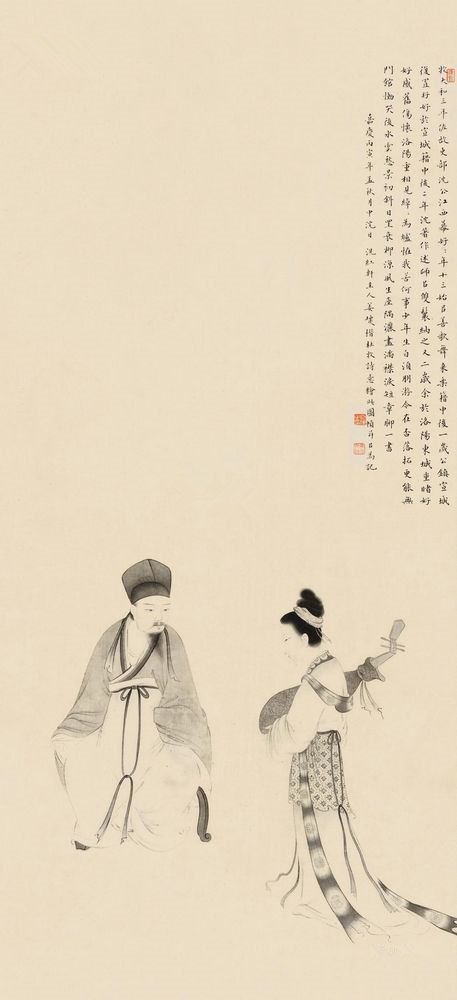 牧大和三年佐故吏部沈公江西幕好〻年十三始㠯善歌舞来樂籍中後一歲公鎮宣城
復置好好於宣城籍中後二年沈著作述師㠯雙鬟納之又二歲余於洛陽東城重睹好
好感舊傷懷洛陽重相見綽〻為壚惟我苦何事少年生白須朋游今在否落拓更能無
門館慟哭後水雲愁景初斜日罣衰柳涼風生座隅灑盡滿襟淚短章聊一書
嘉慶丙寅年孟秋月中浣日 洗紅軒主人姜壎楷杜牧詩意繪此圖幀并㠯為記